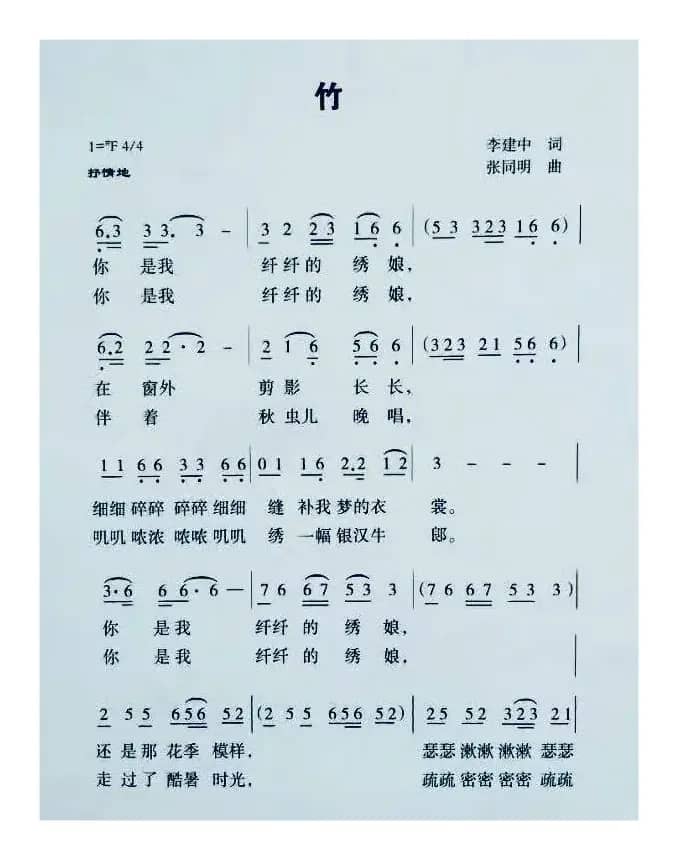 竹
1=#F 4/4
李建中 词
抒情地
张同明 曲
6.3 3 3. 3 - | 3 2 2 3 1 6 6 | (5 3 3 2 3 1 6 6 |
你 是我 纤纤的 绣 娘,
你 是我 纤纤的 绣 娘,
6.2 2 2· 2 - | 2 1 6 5 6 6 | (3 2 3 2 1 5 6 6 |
在 窗外 剪 影 长 长,
伴 着 秋 虫儿 晚 唱,
1 1 6 6 3 3 6 6 | 0 1 1 6 2.2 1 2 | 3 - - - |
细细 碎碎 碎碎 细细 缝 补我 梦的衣 裳。
叽叽 哝浓 哝哝 叽叽 绣 一幅 银汉牛 郎。
3·6 6 6·6 — | 7 6 6 7 5 3 3 | (7 6 6 7 5 3 3 )|
你 是我 纤纤 的 绣 娘,
你 是我 纤纤 的 绣 娘,
2 5 5 6 5 6 5 2 | (2 5 5 6 5 6 5 2) | 2 5 5 2 3 2 3 2 1
还 是那 花季 模样, 瑟瑟 漱漱 漱漱 瑟瑟
走 过了 酷暑 时光, 疏疏 密密 密密 疏疏